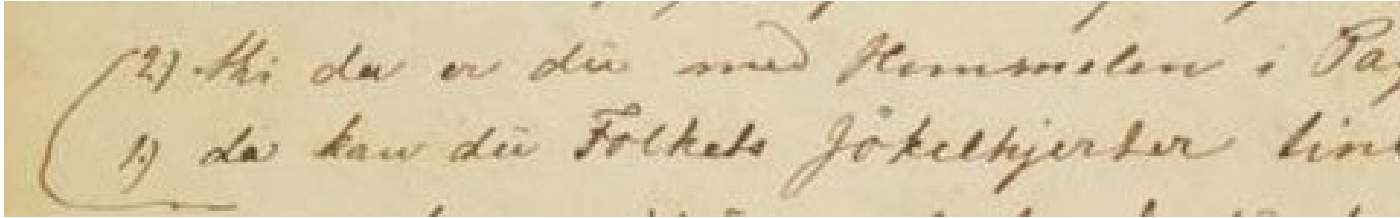 2) thi da er du med Himmelen i Pag
1) da kan du Folkets Jökelhjerter lin